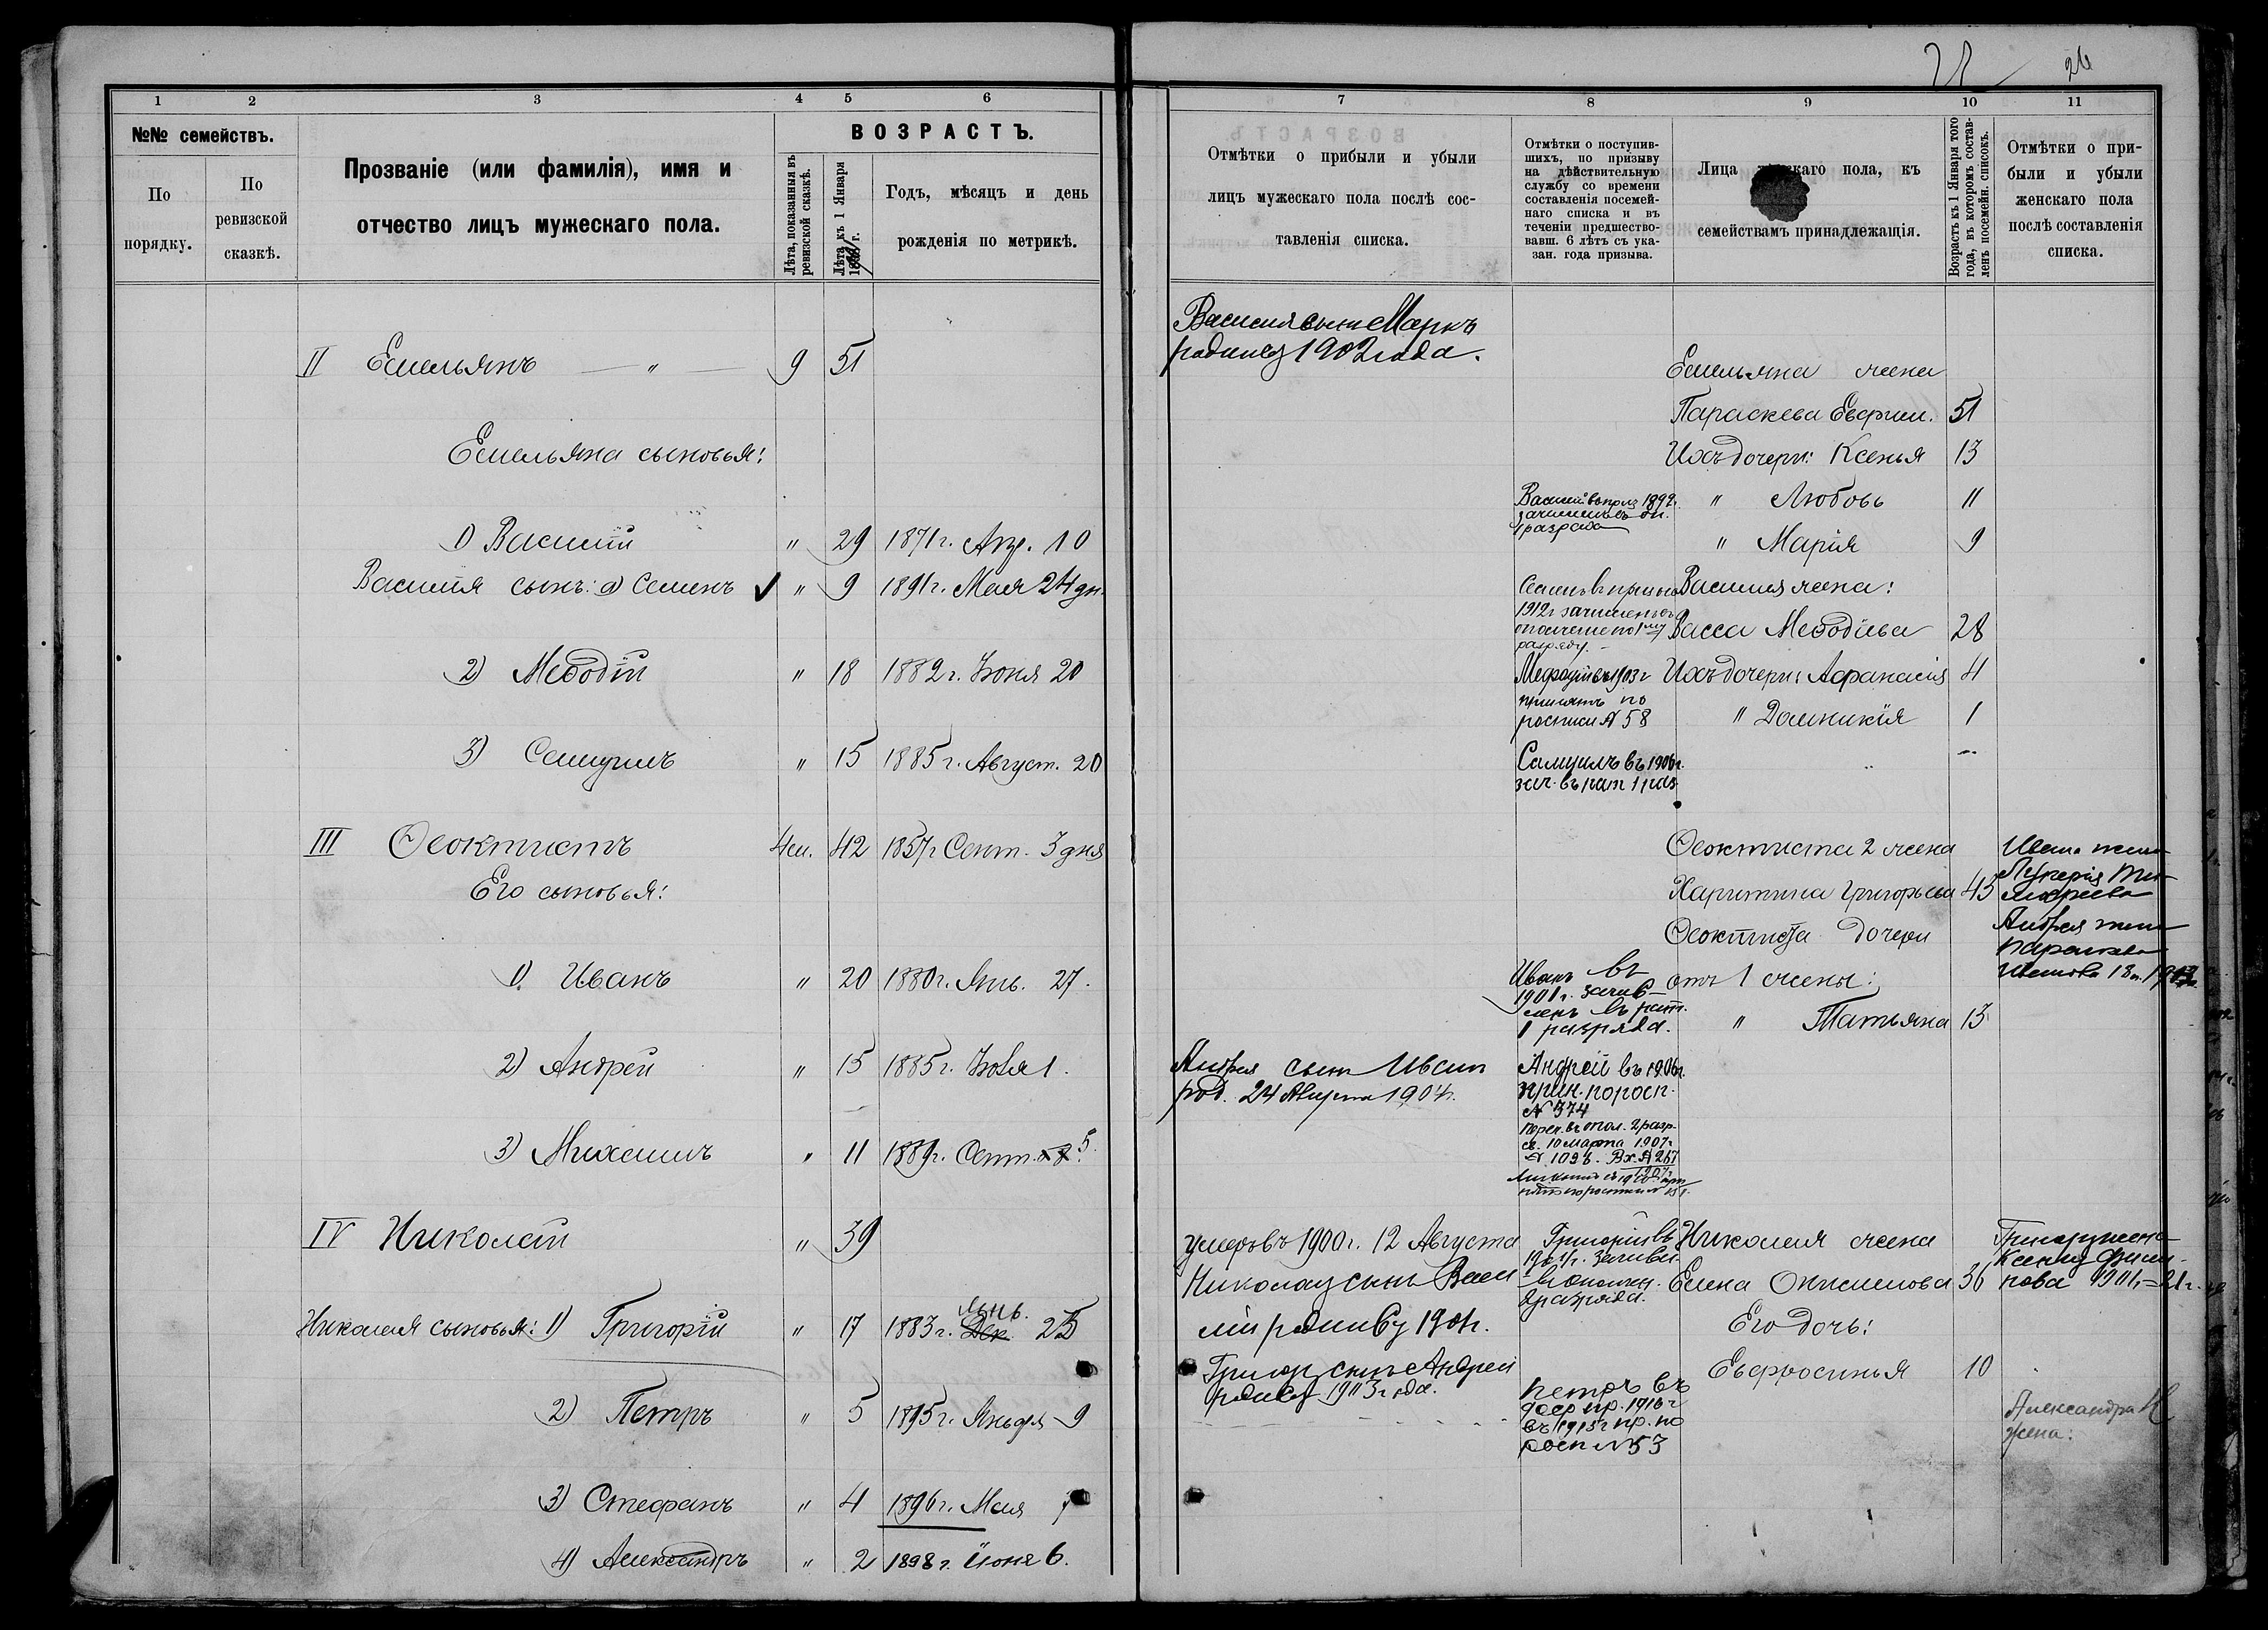 21 26
1 2 3 4 5 6
№№ семействъ.
По порядку.
По ревизской сказкѣ.
Прозваніе (или фамилія), имя и
отчество лицъ мужескаго пола.
ВОЗРАСТЪ.
Лѣта, показанныя въ
ревизской сказкѣ.
Лѣта къ 1 Января
Годъ, мѣсяцъ и день
рожденія по метрикѣ.
II Емельянъ — " — 9 51
Емельяна сыновья:
1) Василій " 29 1871 г. Апр. 10
Василія сынъ: а) Семенъ " 9 1891 г. Мая 24 дн.
2) Меѳодій " 18 1882 г. Іюня 20
3) Самуилъ " 15 1885 г. Август. 20
III Ѳеоктистъ 4 м. 42 1857 г Сент. 3 дня
Его сыновья:
1) Иванъ " 20 1880 г. Янв. 27.
2) Андрей " 15 1885 г. Іюля 1.
3) Михаилъ " 11 1889 г. Сент. 5.
IV Николай " 39
Николая сыновья: 1) Григорій " 17 1883 г. Янв. 25
2) Петръ " 5 1895 г. Января 9
3) Стефанъ " 4 1896 г. Мая 7
4) Александръ " 2 1898 г. Іюня 6.
7 8 9 10 11
Отмѣтки о прибыли и убыли
лицъ мужескаго пола послѣ сос-
тавленія списка.
Отмѣтки о поступив-
шихъ, по призыву
на дѣйствительную
службу со времени
составленія посемей-
наго списка и въ
теченіи предшество-
вавш. 6 лѣтъ съ ука-
зан. года призыва.
Лица пола, къ
семействамъ принадлежащія.
Возрастъ къ 1 Января того
года, въ которомъ состав-
ленъ посемейн. списокъ.
Отмѣтки о при-
были и убыли
женскаго пола
послѣ составленія
списка.
Василія сынъ Маркъ
родился 1902 года.
Емельяна жена
Параскева Ефрим. 51
Ихъ дочери: Ксенья 13
Василій въ приз 1892 г.
зачисленъ
1 разряда
" Любовь 11
" Марія 9
Семенъ въ призывъ
1912 г зачисленъ въ
ополченіе по 1му
разряду.
Василія жена:
Васса Меѳодіева 28
Мефодій въ 1903 г
принятъ по
росписи № 58
Ихъ дочери: Афанасія 4
" Домникія 1
Самуилъ въ 1906 г.
зач. въ рат 1 раз
Ѳеоктиста 2 жена
Харитина Григорьева 43
Ѳеоктиста дочери
отъ 1 жены:
" Татьяна 13
Ивана жена
Лукерія Ти-
мофеева
Андрея жена
Параскева
Иванова 18 л.
Иванъ въ
1901 г. зачис-
ленъ въ рат.
1 разряда.
Андрея сынъ Иванъ
род. 24 Августа 1904 г.
Андрей въ 1906 г.
прин. по росп.
№ 374
Переч. въ опол. 2 разр.
св. 10 марта 1907 г
№ 1098. Вх. № 267
Умеръ въ 1900 г. 12 Августа
Николая сынъ Васи-
лій родился 1901 г.
Григор сынъ Андрей
родился 1903 года.
Григорій въ
1901 г. зачислен
въ ополчен.
2 разряда.
Николая жена
Елена Онисимова 36
Его дочь:
Евфросинья 10
Григорія жена
Ксенія Филип-
пова 1901 г. = 21 г.
Петръ въ
приз. 1916 г
въ 1915 г пр. по
росп № 53
Александра
жена: